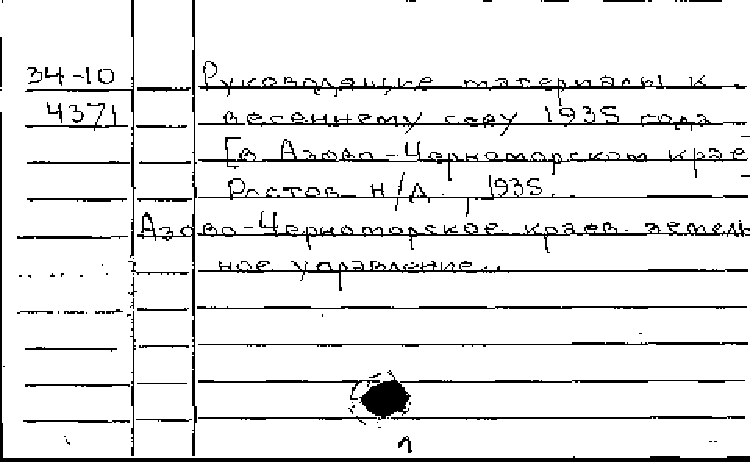 34-10 Руководящие материалы к
4371 весеннему севу 1935 года
[в Азово-Черноморском крае
Ростов н/Д. 1935.
Азово-Черноморское краев. земель
ное управление.
1